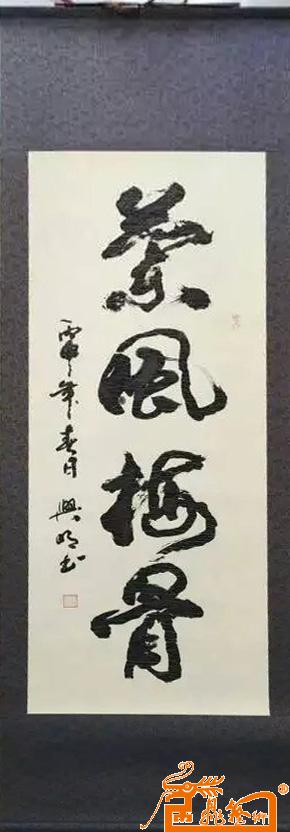 蘭風梅骨
丙申年春月興明書